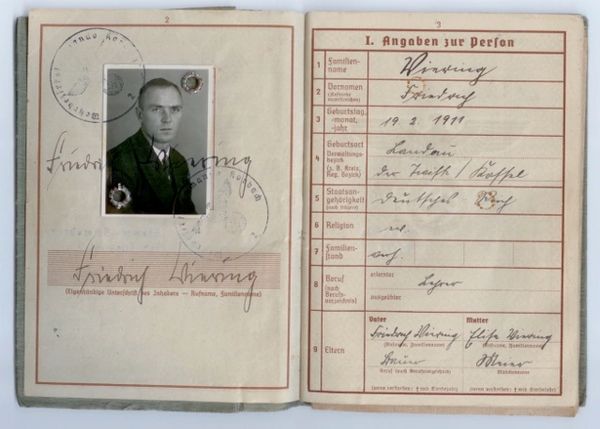 2
Friedrich Wiering
Friedrich Wiering
(Eigenhändige Unterschrift des Inhabers — Rufname, Familienname)
3
I. Angaben zur Person
1 Familien-name Wiering
2 Vornamen (Rufname unterstreichen) Friedrich
3 Geburtstag, -monat, -jahr 19. 2. 1911
4 Geburtsort Verwaltungs-bezirk (z. B. Kreis, Reg. Bezirk) Landau
der Twiste / Kassel
5 Staatsan-gehörigkeit (auch frühere) Deutsches Reich
6 Religion ev.
7 Familien-stand verh.
8 Beruf (nach Berufs-verzeichnis) erlernter Lehrer
ausgeübter
9 Eltern
Vater Mutter
Friedrich Wiering Elise Wiering
(Rufname, Familienname) (Rufname, Familienname)
Meier
Beruf (nach Berufsverzeichnis) (Mädchenname)
(wenn verstorben: † und Sterbejahr) (wenn verstorben: † und Sterbejahr)